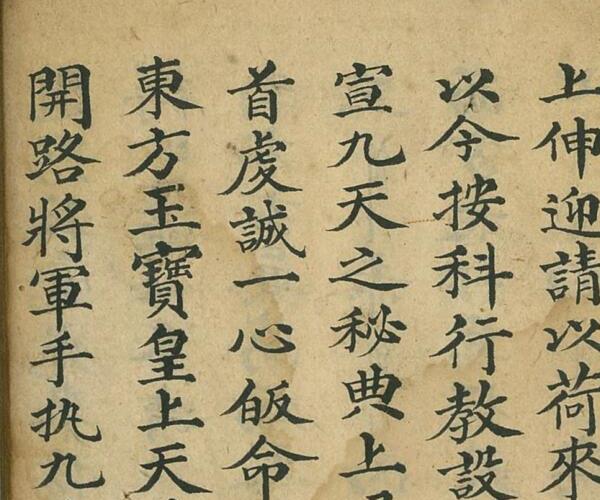 上伸迎請以荷來
以今按科行教設
宣九天之秘典上
首虔誠一心皈命
東方玉寶皇上天
開路將軍手执九